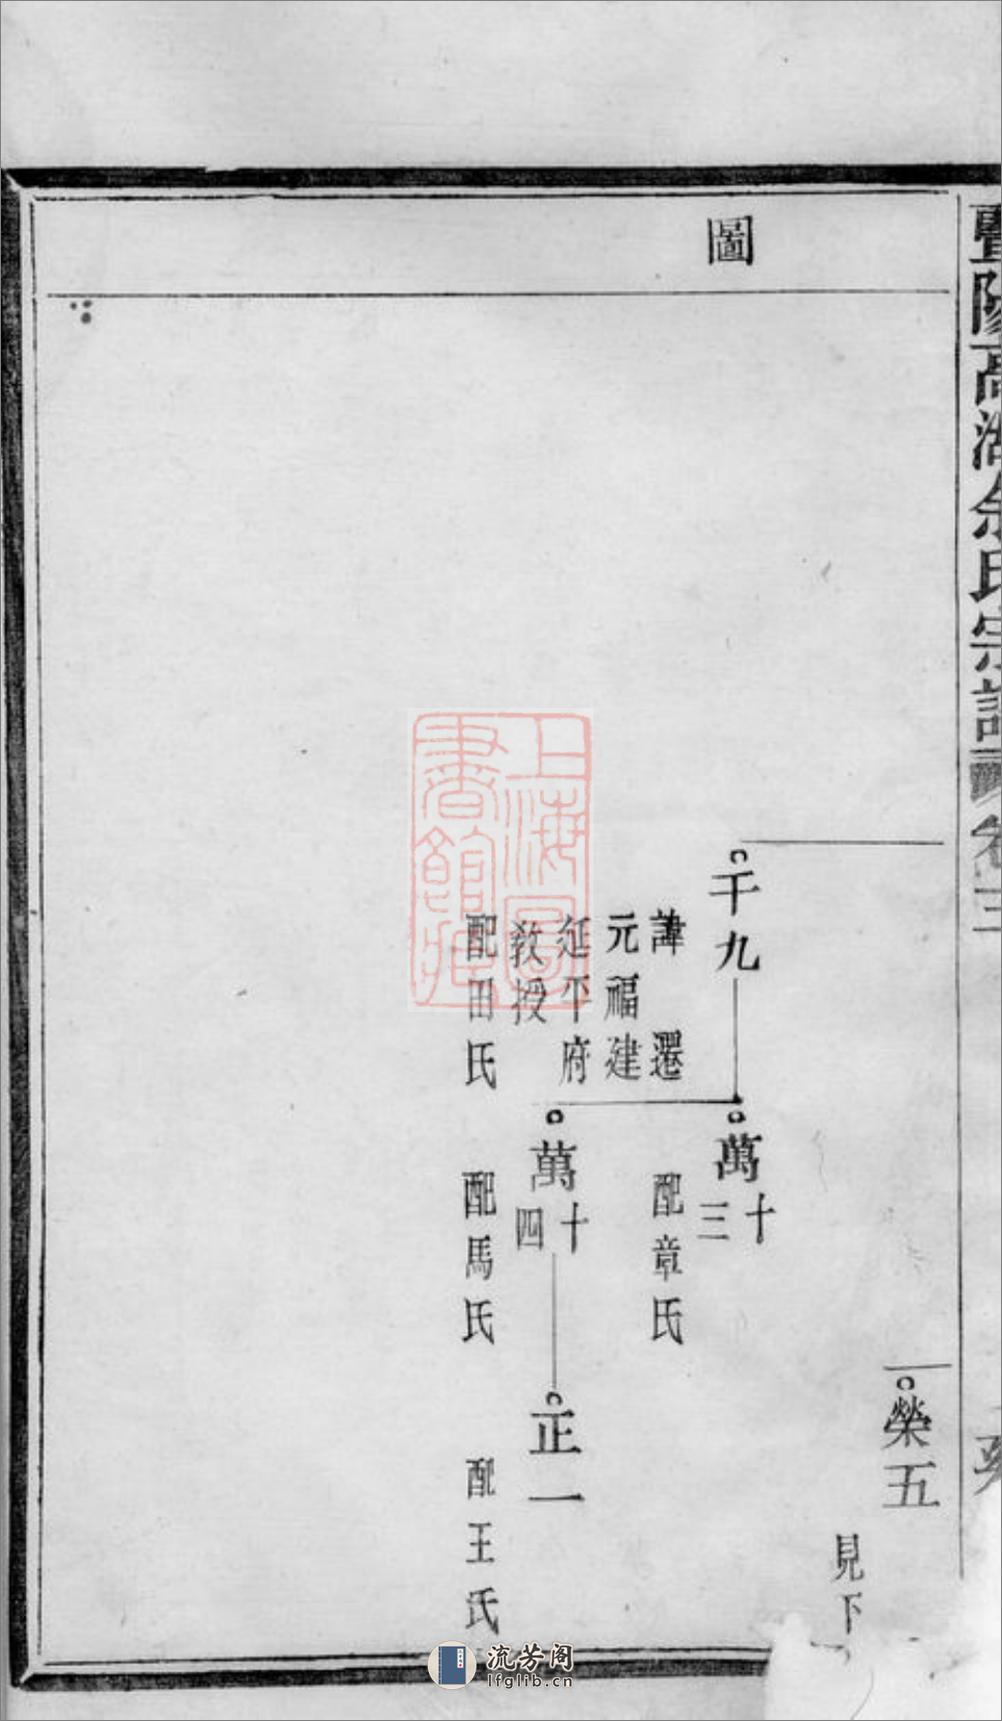 暨陽高湖余氏宗譜 卷三
圖
榮五
見下
千九
諱 選
元福建
延平府
教授
配田氏
萬十三
配章氏
萬十四
配馬氏
正一
配王氏
上海圖書館藏
流芳阁
lfglib.cn